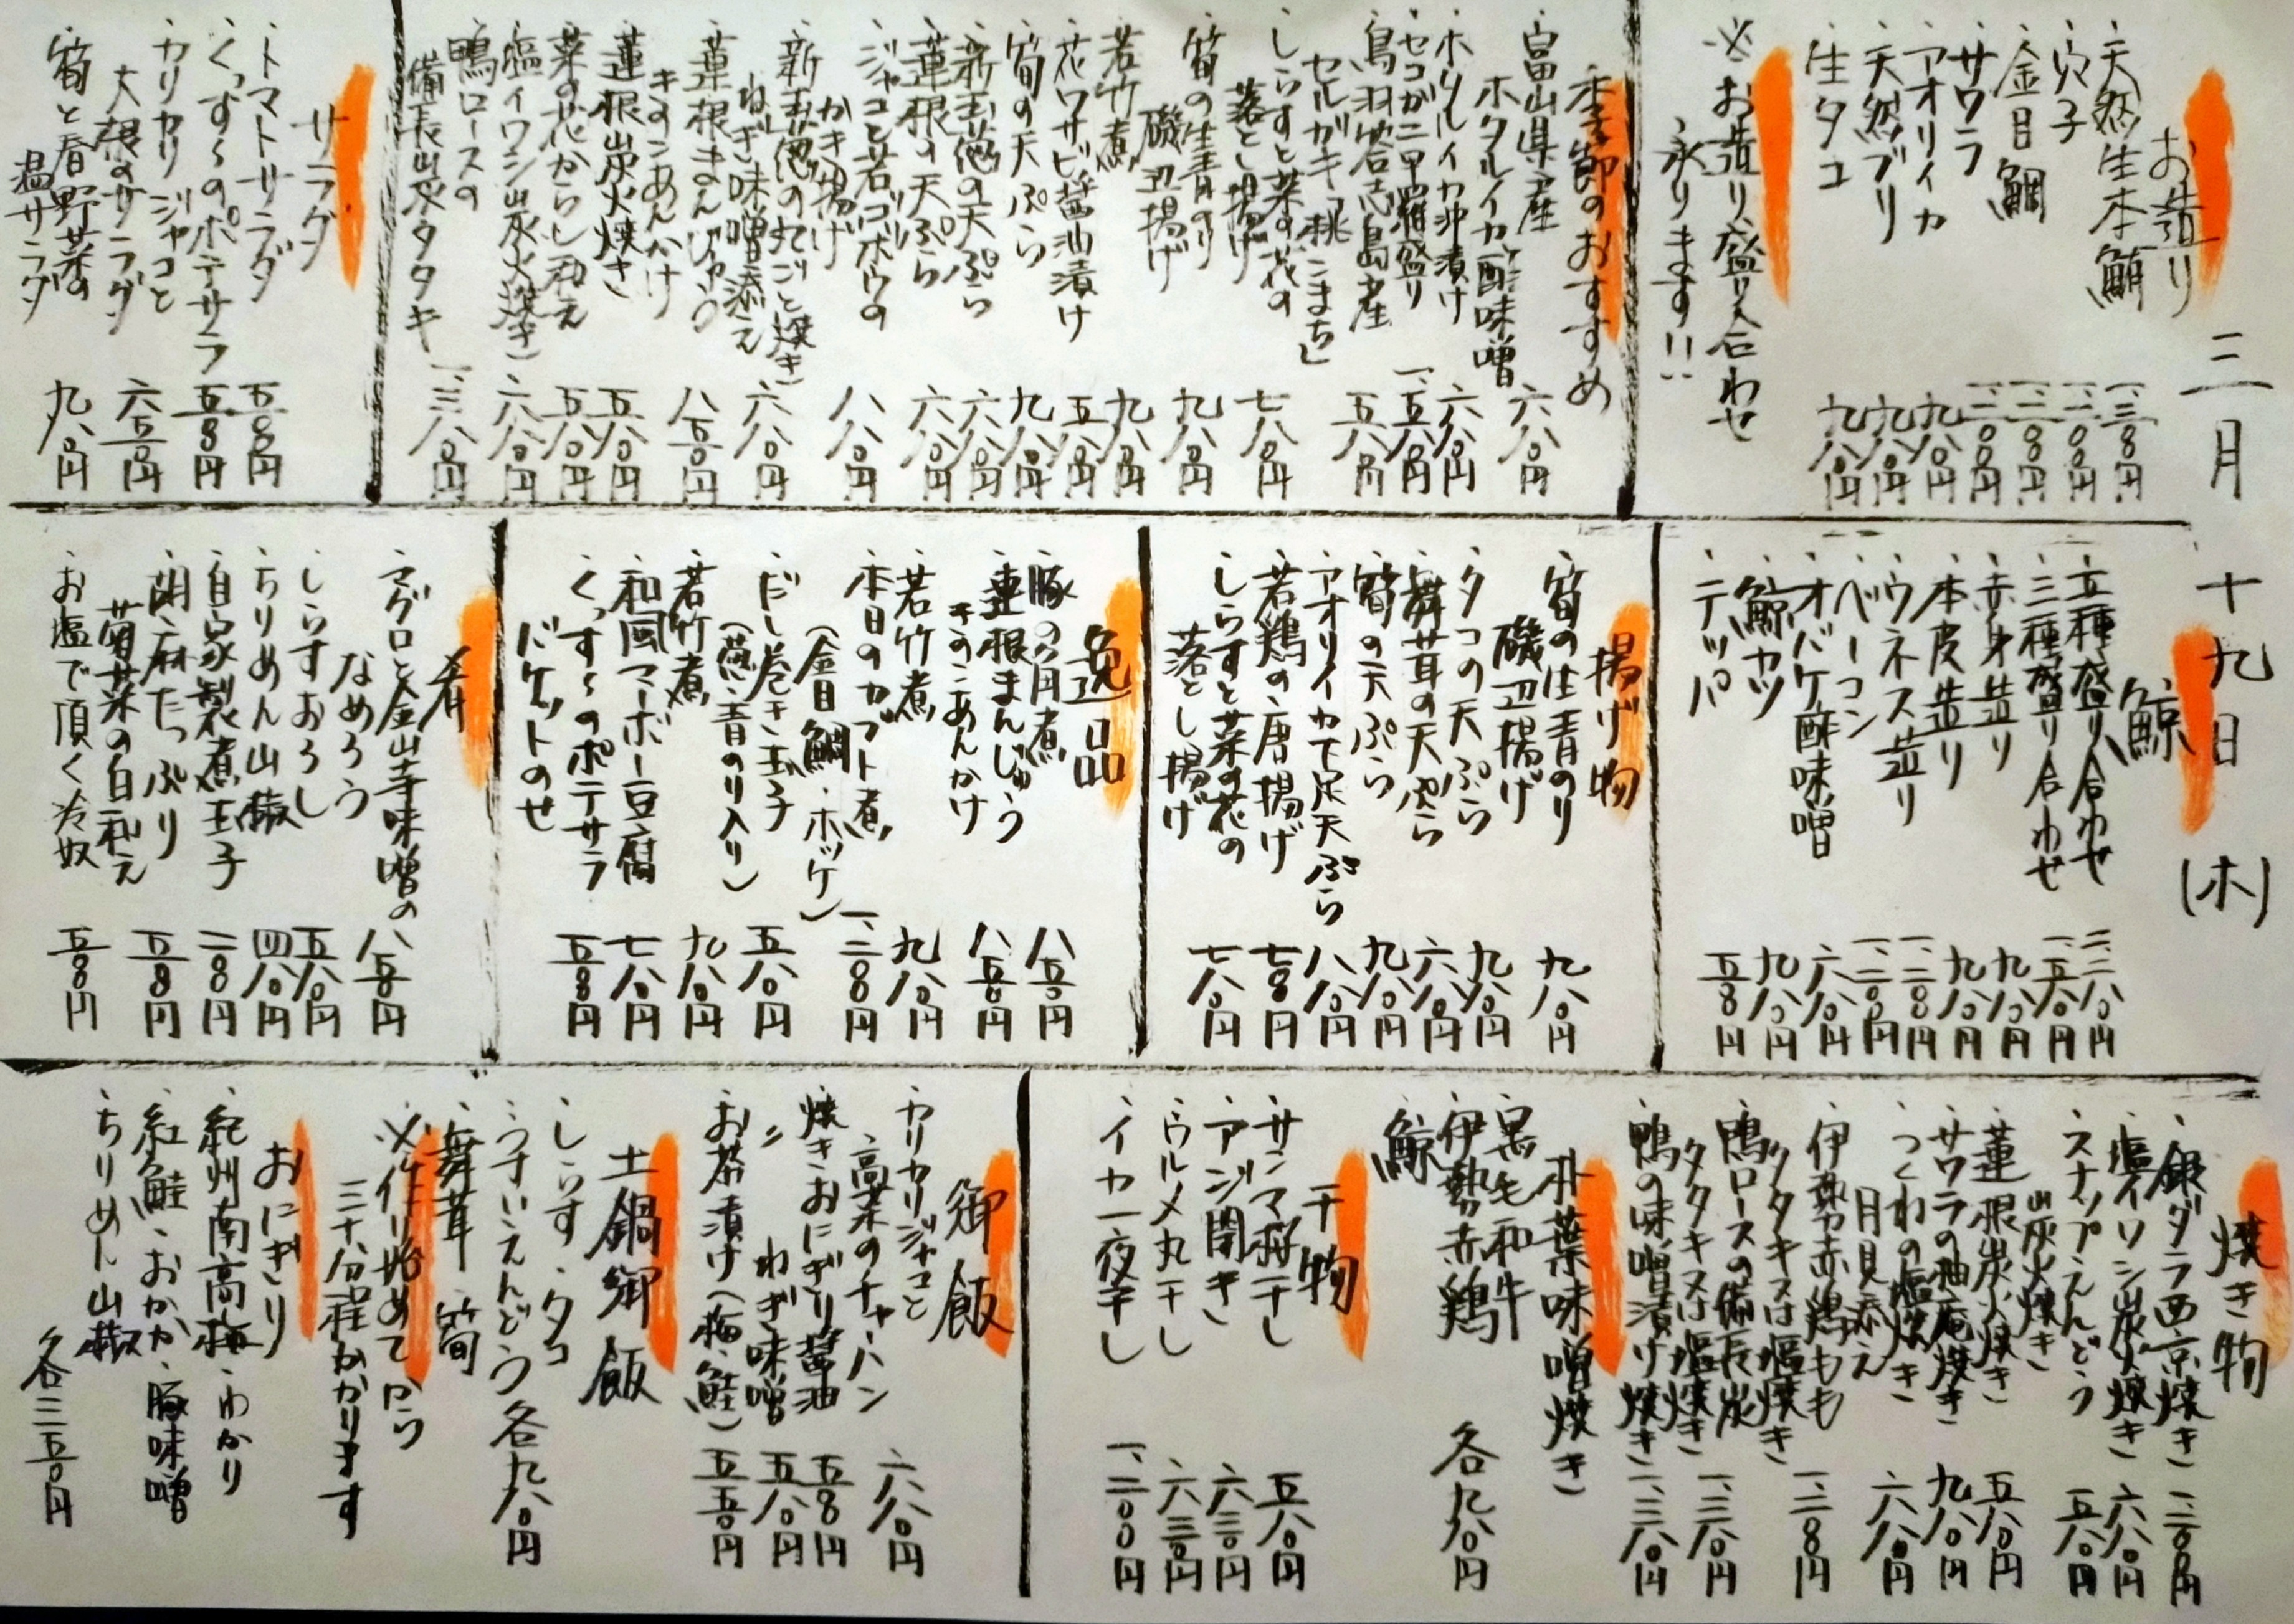 三月 十九日 (木)
お造り
・天然生本鮪 一、三〇〇円
・穴子
・金目鯛
・サワラ
・アオリイカ 九八〇円
・天然ブリ 九八〇円
・生タコ 九八〇円
※お造り盛り合わせ
承ります!!
季節のおすすめ
・富山県産
ホタルイカ酢味噌 六八〇円
・ホタルイカ沖漬け 六八〇円
・セコガニ甲羅盛り 一、五八〇円
・鳥羽答志島産
セルガキ「桃こまち」 五八〇円
・しらすと菜の花の
落とし揚げ 七八〇円
・筍の生青のり
磯辺揚げ 九八〇円
・若竹煮 九八〇円
・花ワサビ醤油漬け 五八〇円
・筍の天ぷら 九八〇円
・新玉葱の天ぷら 六八〇円
・蓮根の天ぷら 六八〇円
・ジャコと若ゴボウの
かき揚げ 八八〇円
・新玉葱の丸ごと焼き
ねぎ味噌添え 六八〇円
・蓮根まんじゅう
きのこあんかけ 八五〇円
・蓮根炭火焼き 五八〇円
・菜の花からし和え 五八〇円
・塩イワシ炭火焼き 六八〇円
・鴨ロースの
備長炭タタキ 一、三八〇円
サラダ
・トマトサラダ 五〇〇円
・くっすぅのポテサラ 五〇〇円
・カリカリジャコと
大根のサラダ 六五〇円
・筍と春野菜の
温サラダ 九八〇円
鯨
・五種盛り合わせ
・三種盛り合わせ
・赤身造り 九八〇円
・本皮造り 九八〇円
・ウネス造り
・ベーコン
・オバケ酢味噌 六八〇円
・鯨カツ 九八〇円
・テッパ
揚げ物
・筍の生青のり
磯辺揚げ 九八〇円
・タコの天ぷら 九八〇円
・舞茸の天ぷら 六八〇円
・筍の天ぷら 九八〇円
・アオリイカ下足天ぷら 八八〇円
・若鶏の唐揚げ 七〇〇円
・しらすと菜の花の
落とし揚げ 七八〇円
逸品
・豚の角煮 八五〇円
・蓮根まんじゅう
きのこあんかけ 八五〇円
・若竹煮 九八〇円
・本日のカブト煮
(金目鯛・ホッケ) 一、二〇〇円
・だし巻き玉子
(葱・青のり入り) 五八〇円
・若竹煮 九八〇円
・和風マーボー豆腐 七八〇円
・くっすぅのポテサラ
バケットのせ
肴
・マグロと金山寺味噌の
なめろう 八五〇円
・しらすおろし 五八〇円
・ちりめん山椒 四八〇円
・自家製煮玉子
・胡麻たっぷり
菊菜の白和え
・お塩で頂く冷奴
焼き物
・銀ダラ西京焼き
・塩イワシ炭火焼き 六八〇円
・スナップえんどう
炭火焼き 五八〇円
・蓮根炭火焼き 五八〇円
・サワラの柚庵焼き 九八〇円
・つくねの塩焼き
月見添え 六八〇円
・伊勢赤鶏もも
タタキ又は塩焼き
・鴨ロースの備長炭
タタキ又は塩焼き 一、三八〇円
・鴨の味噌漬け焼き 一、三八〇円
朴葉味噌焼き
・黒毛和牛
・伊勢赤鶏
・鯨
各九八〇円
干物
・サンマ味醂干し 五八〇円
・アジ開き 六三〇円
・ウルメ丸干し 六三〇円
・イカ一夜干し 一、二〇〇円
御飯
・カリカリジャコと
高菜のチャーハン 六八〇円
・焼きおにぎり醤油 五〇〇円
・〃 ねぎ味噌 五八〇円
・お茶漬け(梅・鮭) 五五〇円
土鍋御飯
・しらす・タコ
・うすいえんどう
・舞茸・筍
各九八〇円
※作り始めてから
三十分程かかります
おにぎり
・紀州南高梅・わかり
・紅鮭・おかか・豚味噌
・ちりめん山椒
各二五〇円